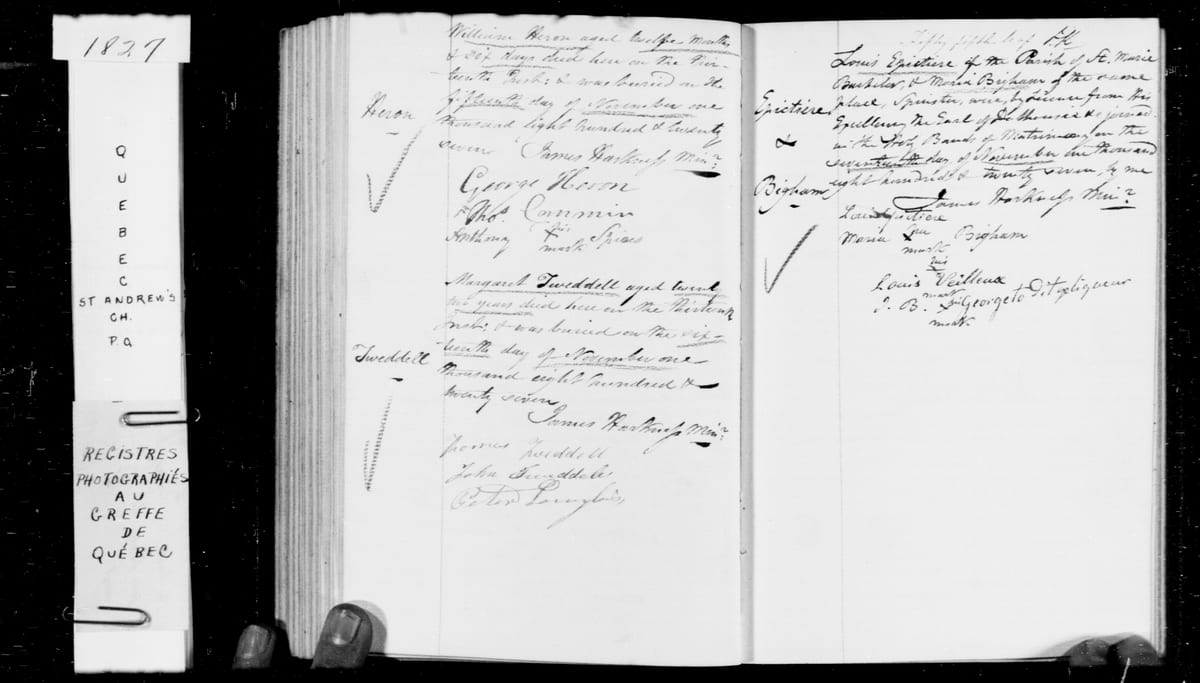 1827
QUEBEC
ST ANDREW'S
CH.
P.Q
REGISTRES
PHOTOGRAPHIÉS
AU
GREFFE
DE
QUÉBEC
Heron
William Heron aged twelve months
& six days died here on the thir-
teenth Inst: & was buried on the
fifteenth day of November one
thousand eight hundred & twenty
seven James Harkness Minr
George Heron
Thos Cammin
Anthony his mark Spires
Tweddell
Margaret Tweddell aged twent
two years died here on the thirteenth
Inst: & was buried on the six-
teenth day of November one
thousand eight hundred &
twenty seven
James Harkness Minr
Tweddell
John Tweddell
Peter Langlois
Fifty fifth leaf J.H
Epictiere
&
Bigham
Louis Epictiere of the Parish of St. Marie
Batchelor, & Maria Brigham of the same
place, Spinster, were, by Licence from His
Excellency the Earl of Dalhousie &c joined
in the Holy Bands of Matrimony on the
seventeenth day of November one thousand
eight hundred & twenty seven, by me
James Harkness Minr
Louis
Maria her mark Bigham
Louis his mark Veilleux
J. B. his mark George